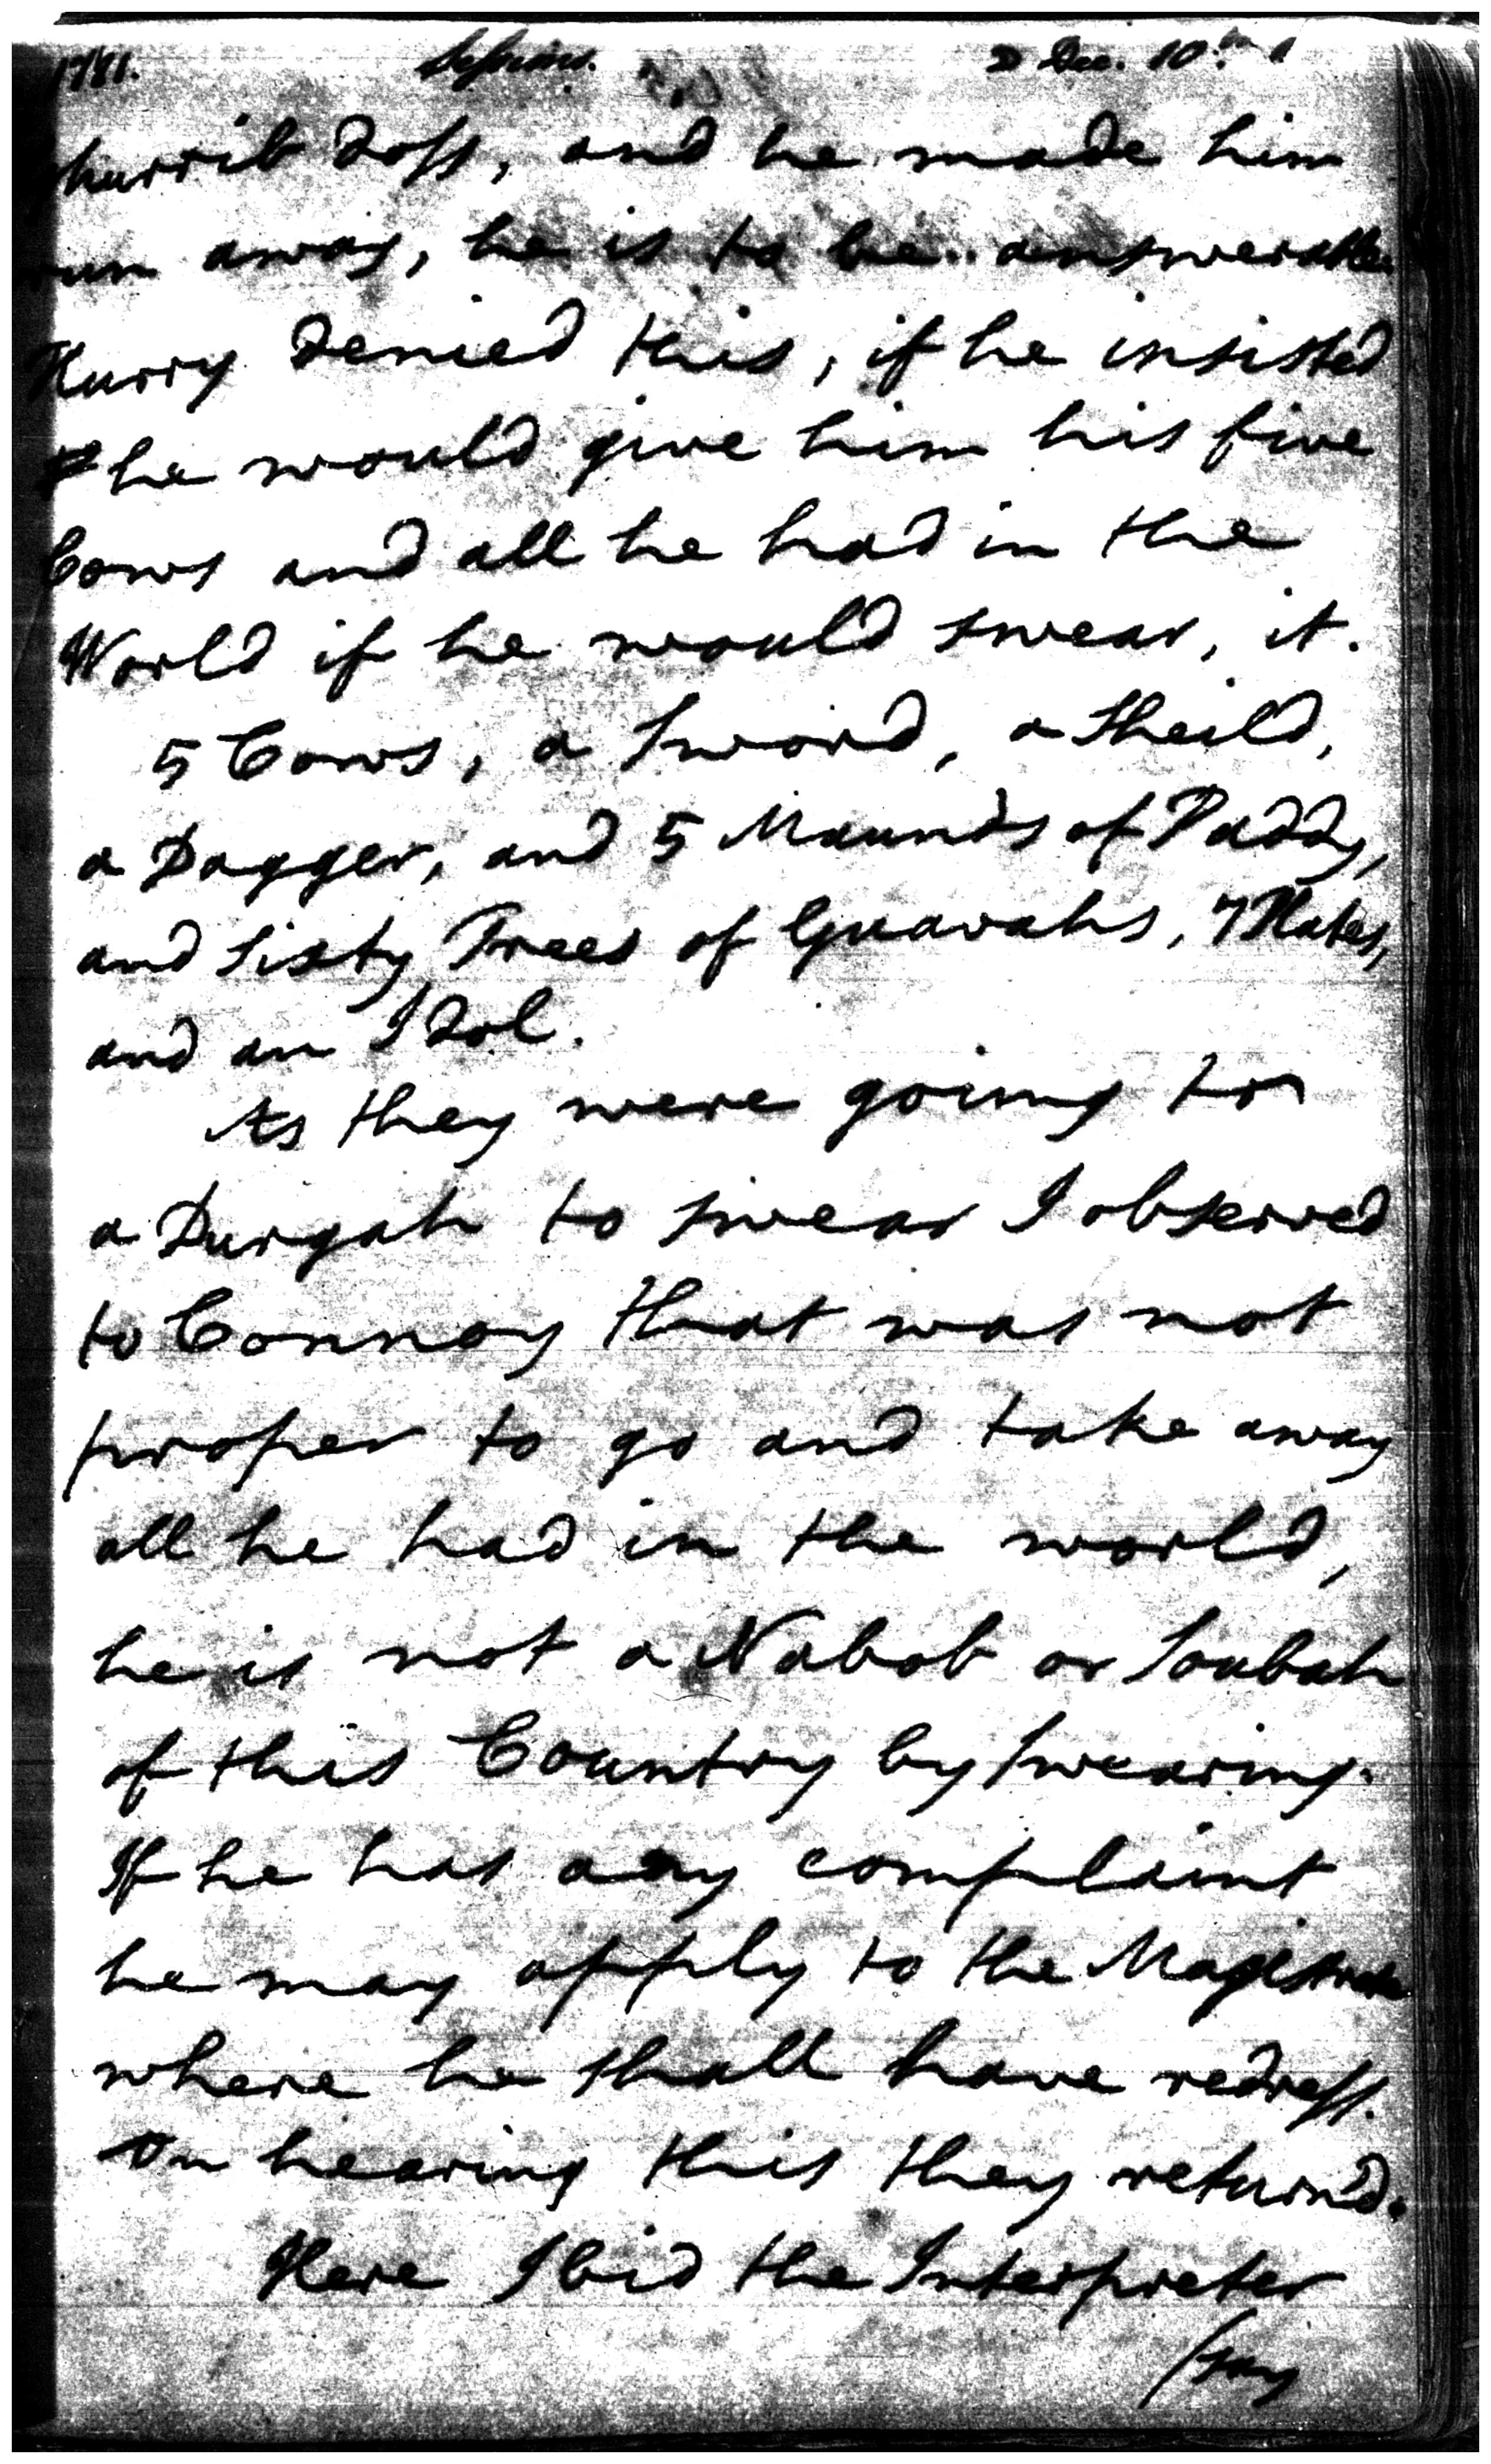 1781. Sessions. D Dec. 10th 1
Ghurrib Doss, and he made him
run away, he is to be answerable.
Hurry denied this, if he insisted
he would give him his five
Cows and all he had in the
World if he would swear, it.
5 Cows, a Sword, a Sheild,
a Dagger, and 5 Maunds of Paddy,
and Sixty Trees of Guavahs, 7 Plates,
and an Idol.
As they were going to
a Durgah to swear I observed
to Connoy that was not
proper to go and take away
all he had in the world,
he is not a Nabob or Soubah
of this Country by swearing.
If he has any complaint
he may apply to the Magistrate
where he shall have redress.
On hearing this they return'd.
Here I bid the Interpreter
/say